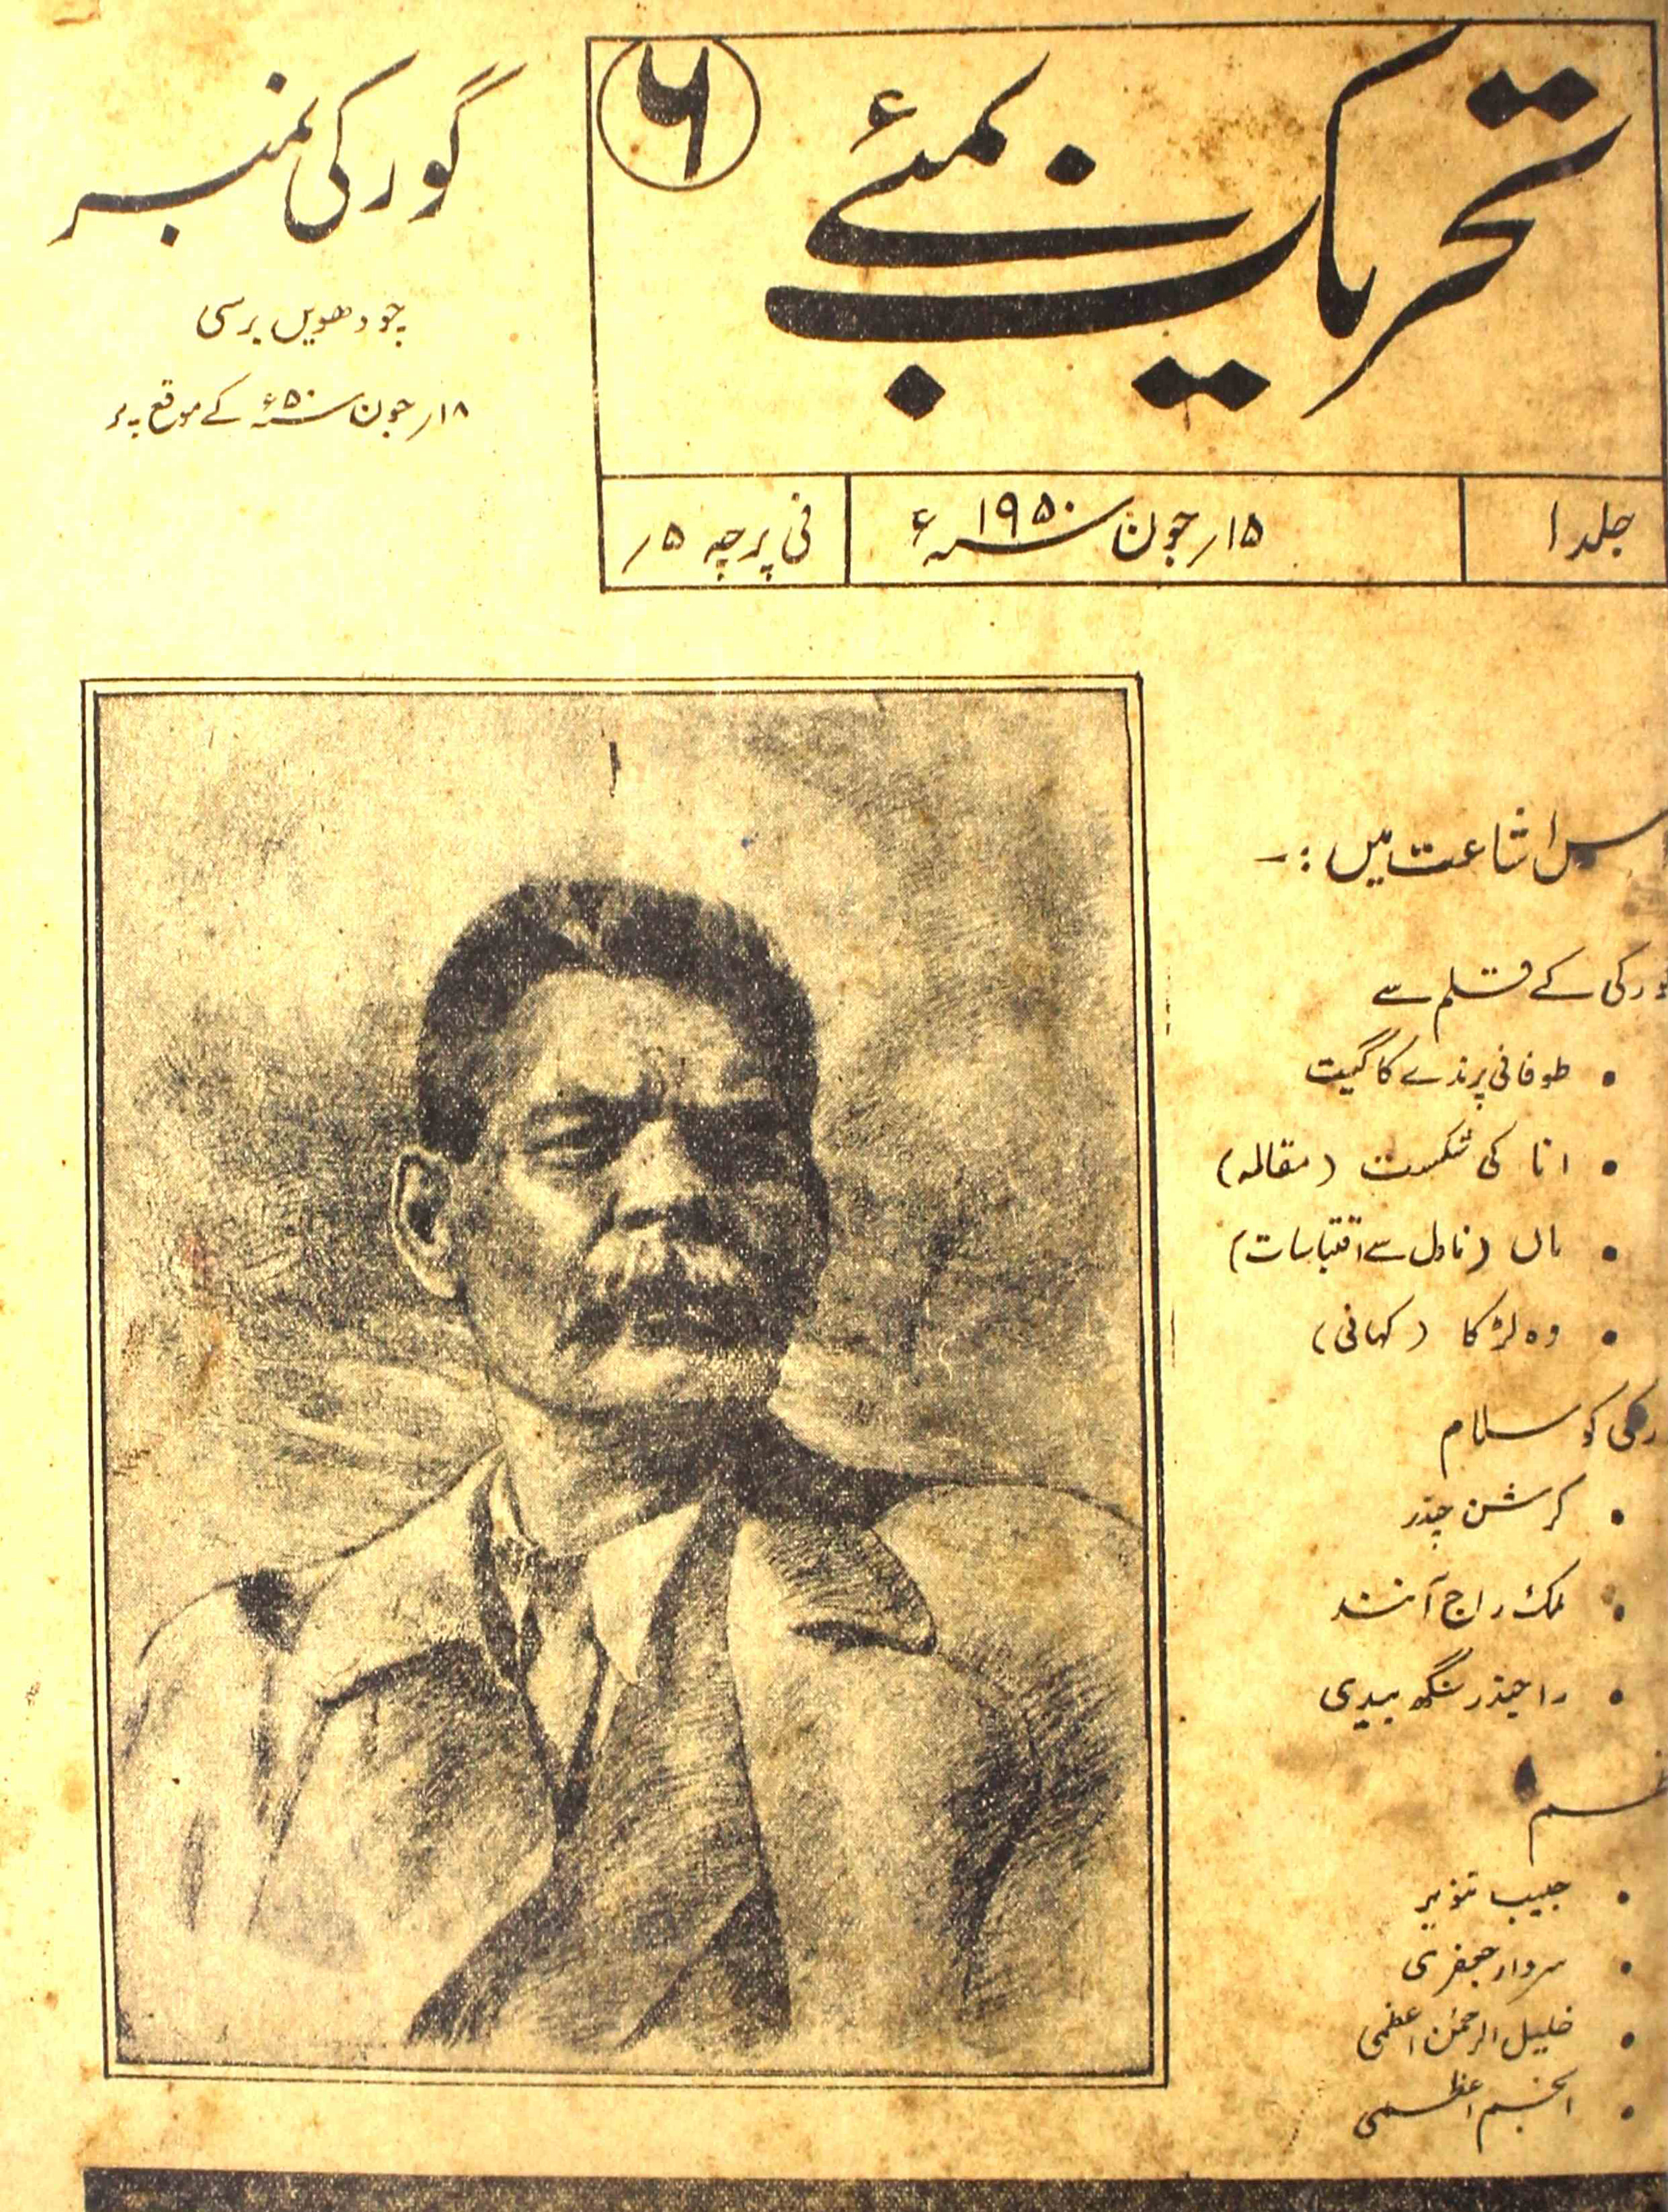 تحریک بمبئی
۶
جلد ۱
۱۵ر جون سنہ ۱۹۵۰ء
فی پرچہ ۵ر
گورکی نمبر
چودھویں برسی
۱۸ر جون سنہ ۵۰ء کے موقع پر
اس اشاعت میں :-
گورکی کے قلم سے
• طوفانی پرندے کا گیت
• انا کی شکست (مقالہ)
• ماں (ناول سے اقتباسات)
• وہ لڑکا (کہانی)
گورکی کو سلام
• کرشن چندر
• ملک راج آنند
• راجیندر سنگھ بیدی
نظم
• حبیب تنویر
• سردار جعفری
• خلیل الرحمٰن اعظمی
• انجم اعظمی